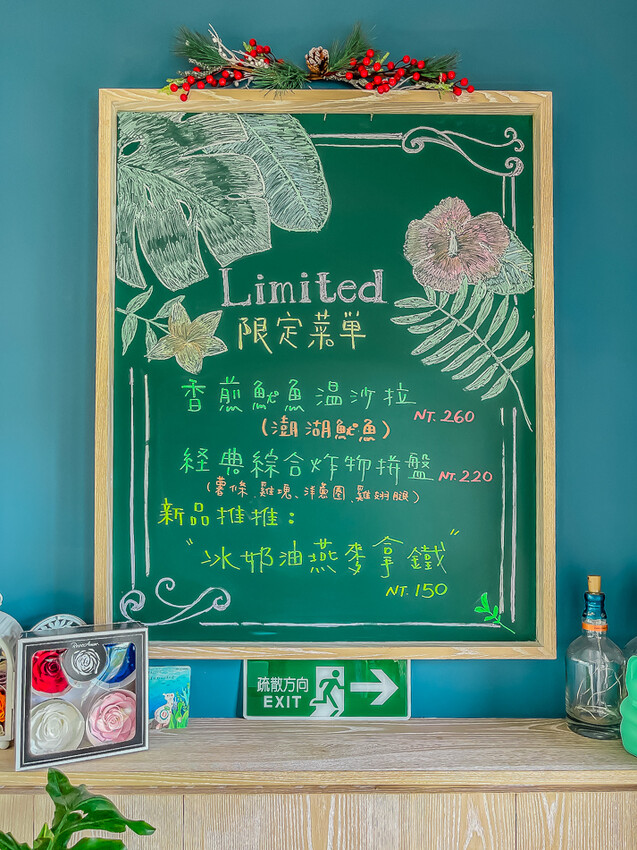 Limited
限定菜單
香煎魷魚溫沙拉 NT. 260
(澎湖魷魚)
経典綜合炸物拼盤 NT. 220
(薯條、雞塊、洋魚圈、雞翅腿)
新品推推：
"冰奶油燕麥拿鐵"
NT. 150
疏散方向
EXIT